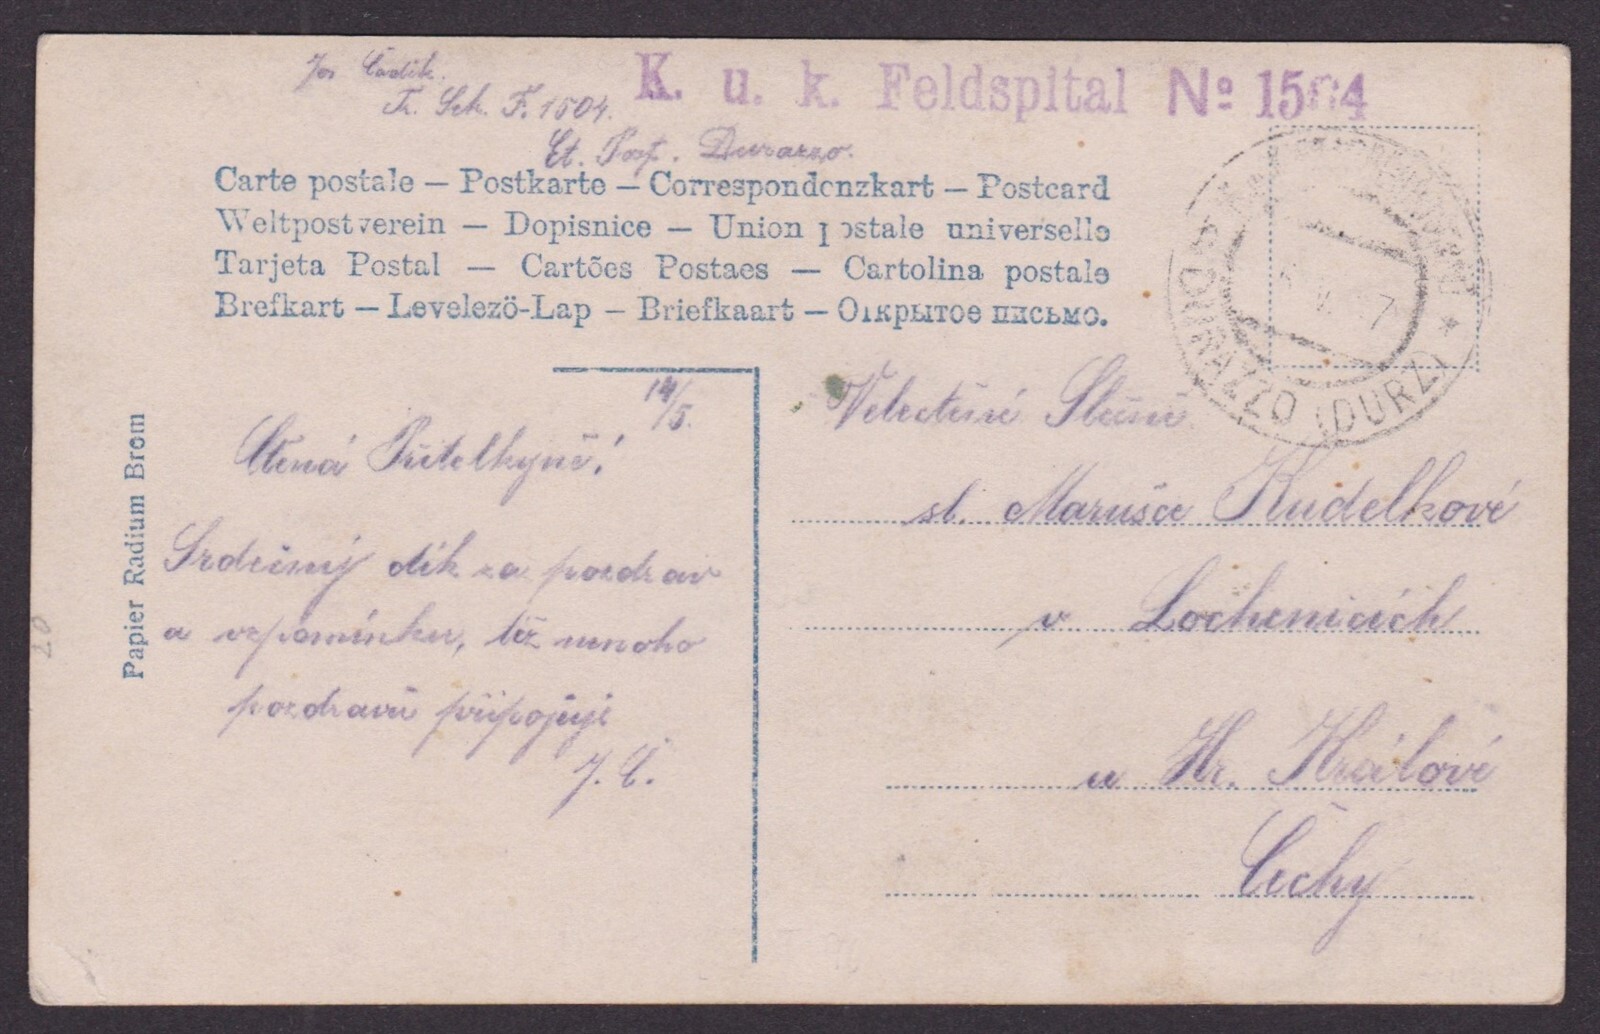 Jos. Čadík.
K. u. k. Feldspital № 1504
F. 1504.
Et. Post. Durazzo.
Carte postale — Postkarte — Correspondenzkart — Postcard
Weltpostverein — Dopisnice — Union postale universelle
Tarjeta Postal — Cartões Postaes — Cartolina postale
Brefkart — Levelező-Lap — Briefkaart — Открытое письмо.
DURAZZO (DURZ) *
14/5.
Ctěná Přítelkyně!
Srdečný dík za pozdrav
a vzpomínku, též mnoho
pozdravů připojuje
J. Č.
Velectěné Slečně
sl. Marušce Kudelkové
v Lochenicích
u Hr. Králové
Čechy
Papier Radium Brom